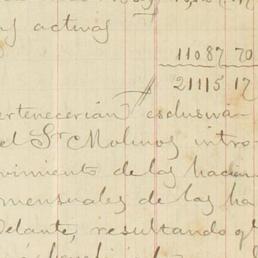 y activas
11087 70
21115 17
ertenecerián esclusiva-
el Sr Molinos intro-
vimiento de las hacien
mensuales de las ha
delante, resultando q